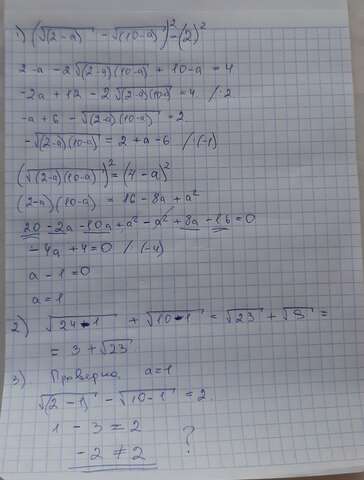 1) (√(2-a) - √(10-a))² = (2)²
2-a-2√(2-a)(10-a) + 10-a = 4
-2a + 12 - 2√(2-a)(10-a) = 4 /:2
-a + 6 - √(2-a)(10-a) = 2
-√(2-a)(10-a) = 2 + a - 6 /·(-1)
(√(2-a)(10-a))² = (4-a)²
(2-a)(10-a) = 16 - 8a + a²
20 - 2a - 10a + a² - a² + 8a - 16 = 0
-4a + 4 = 0 /:(-4)
a - 1 = 0
a = 1
2) √24-1 + √10-1 = √23 + √9 =
= 3 + √23
3) Проверка a=1
√(2-1) - √10-1 = 2
1 - 3 = 2
-2 ≠ 2 ?